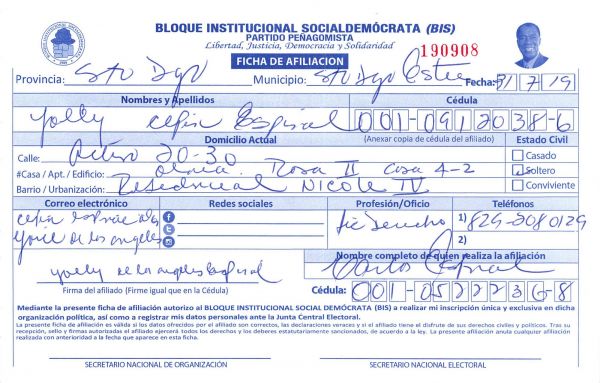 BLOQUE INSTITUCIONAL SOCIALDEMÓCRATA (BIS)
PARTIDO PEÑAGOMISTA
Libertad, Justicia, Democracia y Solidaridad
190908
FICHA DE AFILIACION
Provincia: Sto Dgo Municipio: Sto Dgo Este Fecha: 31/7/19
Nombres y Apellidos Cédula
Yolly Cepin Espinal 001-0912038-6
Domicilio Actual (Anexar copia de cédula del afiliado) Estado Civil
Calle: 20-30 Casado
#Casa / Apt. / Edificio: Rosa II Casa 4-2 Soltero
Barrio / Urbanización: Residencial Nicole IV Conviviente
Correo electrónico Redes sociales Profesión/Oficio Teléfonos
cepin Lic Derecho 1) 829-5080129
de los angeles 2)
Nombre completo de quien realiza la afiliación
Yolly de los angeles Espinal Carlos Espinal
Firma del afiliado (Firme igual que en la Cédula) Cédula: 001-0522236-8
Mediante la presente ficha de afiliación autorizo al BLOQUE INSTITUCIONAL SOCIAL DEMÓCRATA (BIS) a realizar mi inscripción única y exclusiva en dicha
organización política, así como a registrar mis datos personales ante la Junta Central Electoral.
La presente ficha de afiliación es válida si los datos ofrecidos por el afiliado son correctos, las declaraciones veraces y si el afiliado tiene el disfrute de sus derechos civiles y políticos. Tras su
recepción, sello y firmas autorizadas el afiliado ejercerá todos los derechos y los deberes estatutariamente sancionados, de acuerdo a la ley. La presente afiliación anula cualquier afiliación
realizada con anterioridad a la fecha que aparece en esta ficha.
SECRETARIO NACIONAL DE ORGANIZACIÓN SECRETARIO NACIONAL ELECTORAL